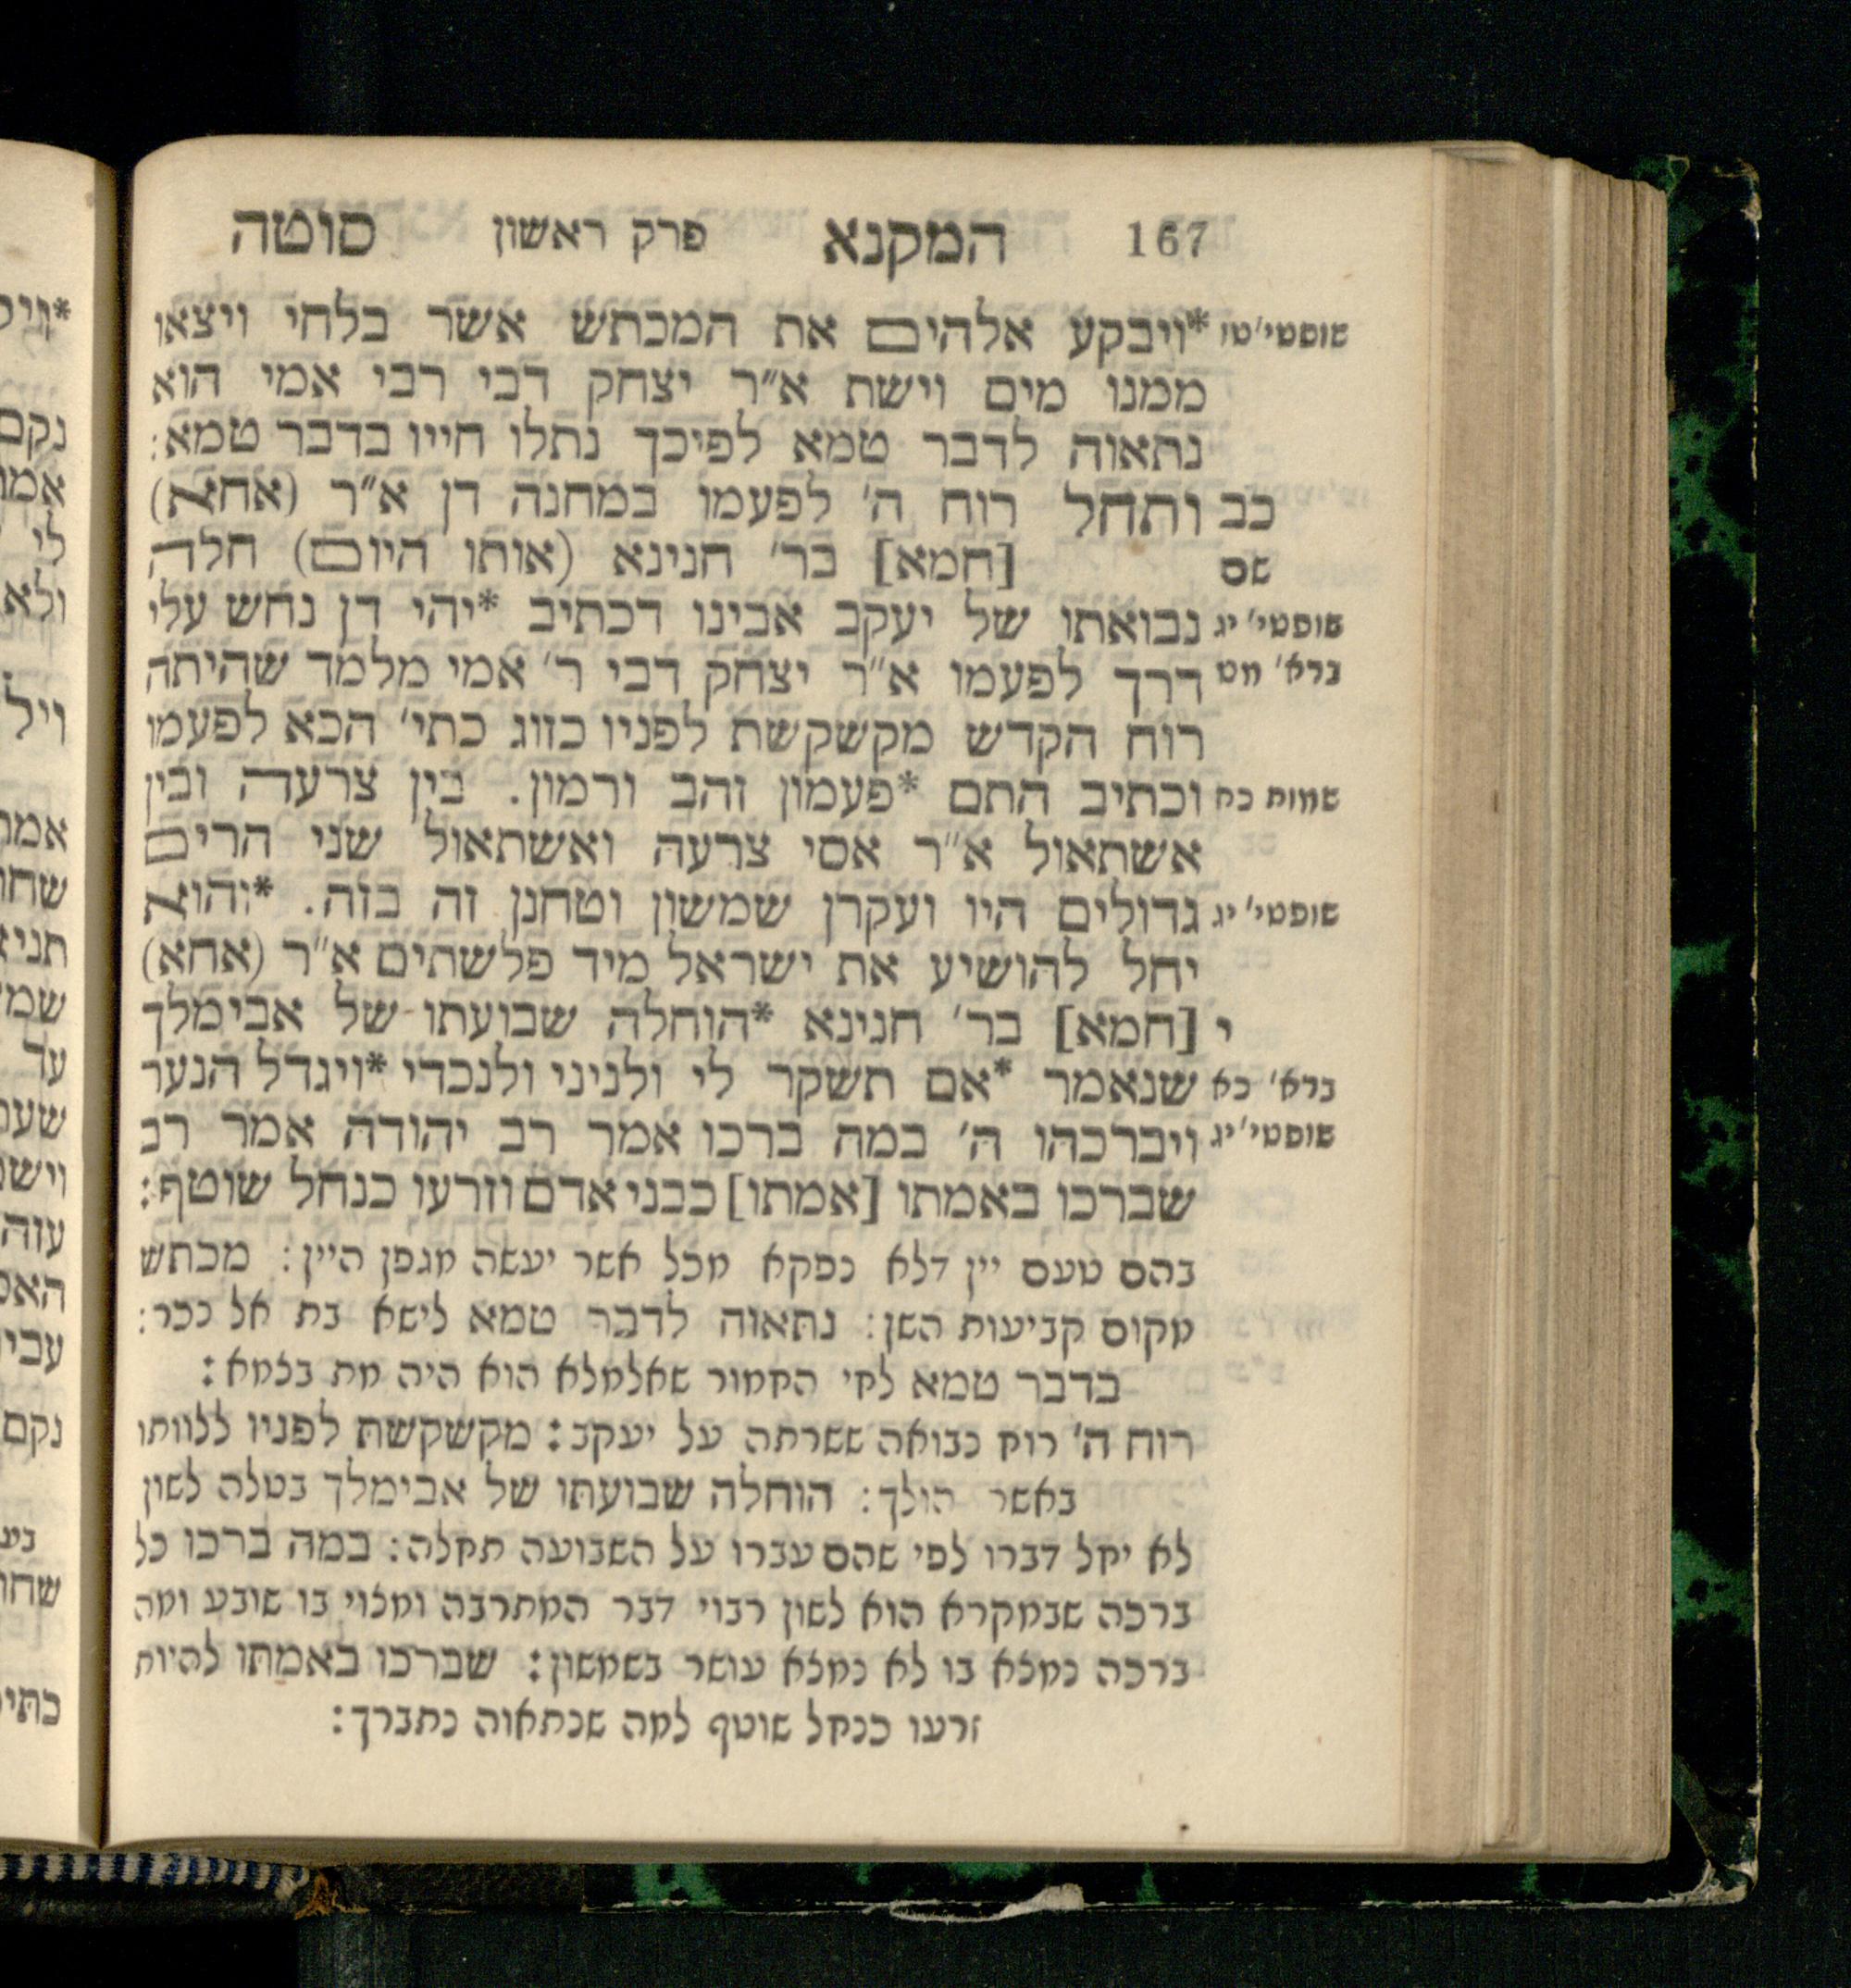 167 המקנא פרק ראשון סוטה
שופטי' טו *ויבקע אלהים את המכתש אשר בלחי ויצאו
ממנו מים וישת א"ר יצחק דבי רבי אמי הוא
נתאוה לדבר טמא לפיכך נתלו חייו בדבר טמא:
כב ותחל רוח ה' לפעמו במחנה דן א"ר (אחא)
שם [חמא] בר' חנינא (אותו היום) חלה
שופטי' יג נבואתו של יעקב אבינו דכתיב *יהי דן נחש עלי
ברא' מט דרך לפעמו א"ר יצחק דבי ר' אמי מלמד שהיתה
רוח הקדש מקשקשת לפניו כזוג כתי' הכא לפעמו
שמות כח וכתיב התם *פעמון זהב ורמון. בין צרעה ובין
אשתאול א"ר אסי צרעה ואשתאול שני הרים
שופטי' יג גדולים היו ועקרן שמשון וטחנן זה בזה. *והוא
יחל להושיע את ישראל מיד פלשתים א"ר (אחא)
י [חמא] בר' חנינא *הוחלה שבועתו של אבימלך
ברא' כא שנאמר *אם תשקר לי ולניני ולנכדי *ויגדל הנער
שופטי' יג ויברכהו ה' במה ברכו אמר רב יהודה אמר רב
שברכו באמתו [אמתו] כבני אדם וזרעו כנחל שוטף:
בהם טעם יין דלא נפקא מכל אשר יעשה מגפן היין: מכתש
מקום קביעות השן: נתאוה לדבר טמא לישא בת אל נכר:
בדבר טמא לחי החמור שאלמלא הוא היה מת בצמא:
רוח ה' רוח נבואה ששרתה על יעקב: מקשקשת לפניו ללוותו
באשר הולך: הוחלה שבועתו של אבימלך בטלה לשון
לא יחל דברו לפי שהם עברו על השבועה תחלה: במה ברכו כל
ברכה שבמקרא הוא לשון רבוי דבר המתרבה ומצוי בו שובע ומה
ברכה נמצא בו לא נמצא עושר בשמשון: שברכו באמתו להיות
זרעו כנחל שוטף למה שנתאוה נתברך: